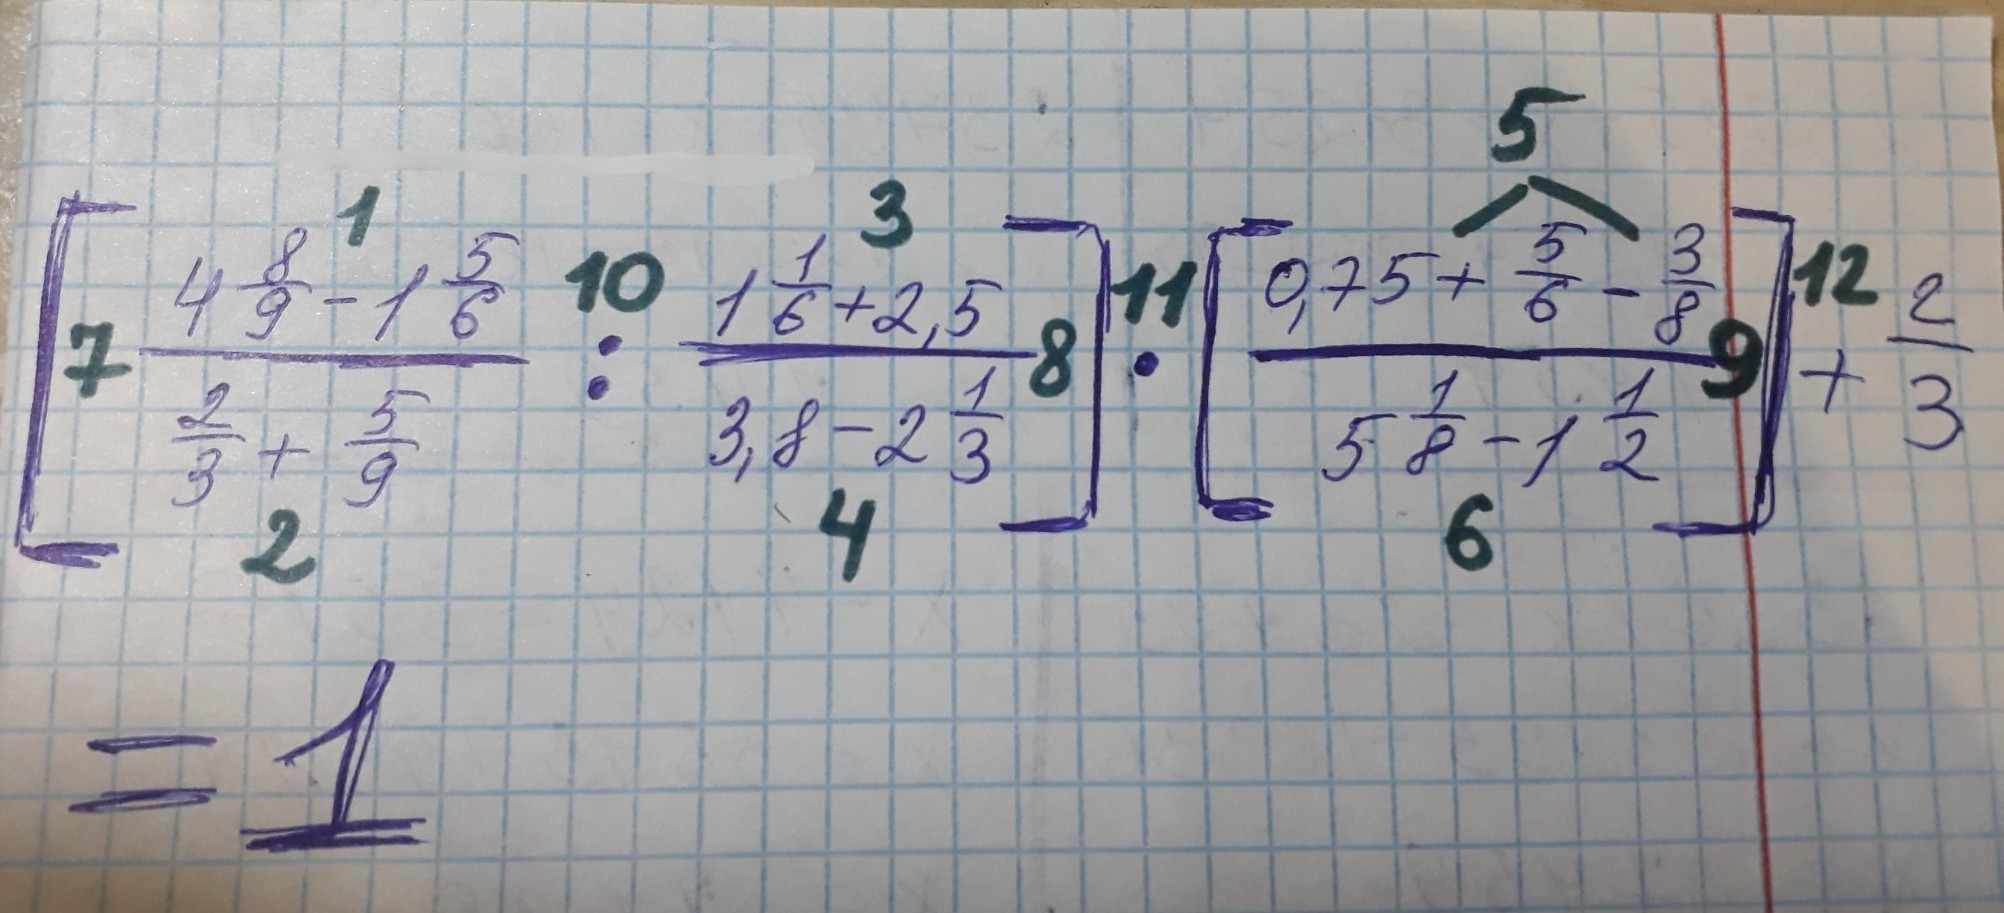 5
1 3
[7 (4 8/9 - 1 5/6)/(2/3 + 5/9) 10 : (1 1/6 + 2,5)/(3,8 - 2 1/3) 8] 11 · [(0,75 + 5/6 - 3/8)/(5 1/8 - 1 1/2) 9] 12 + 2/3
2 4 6
= 1